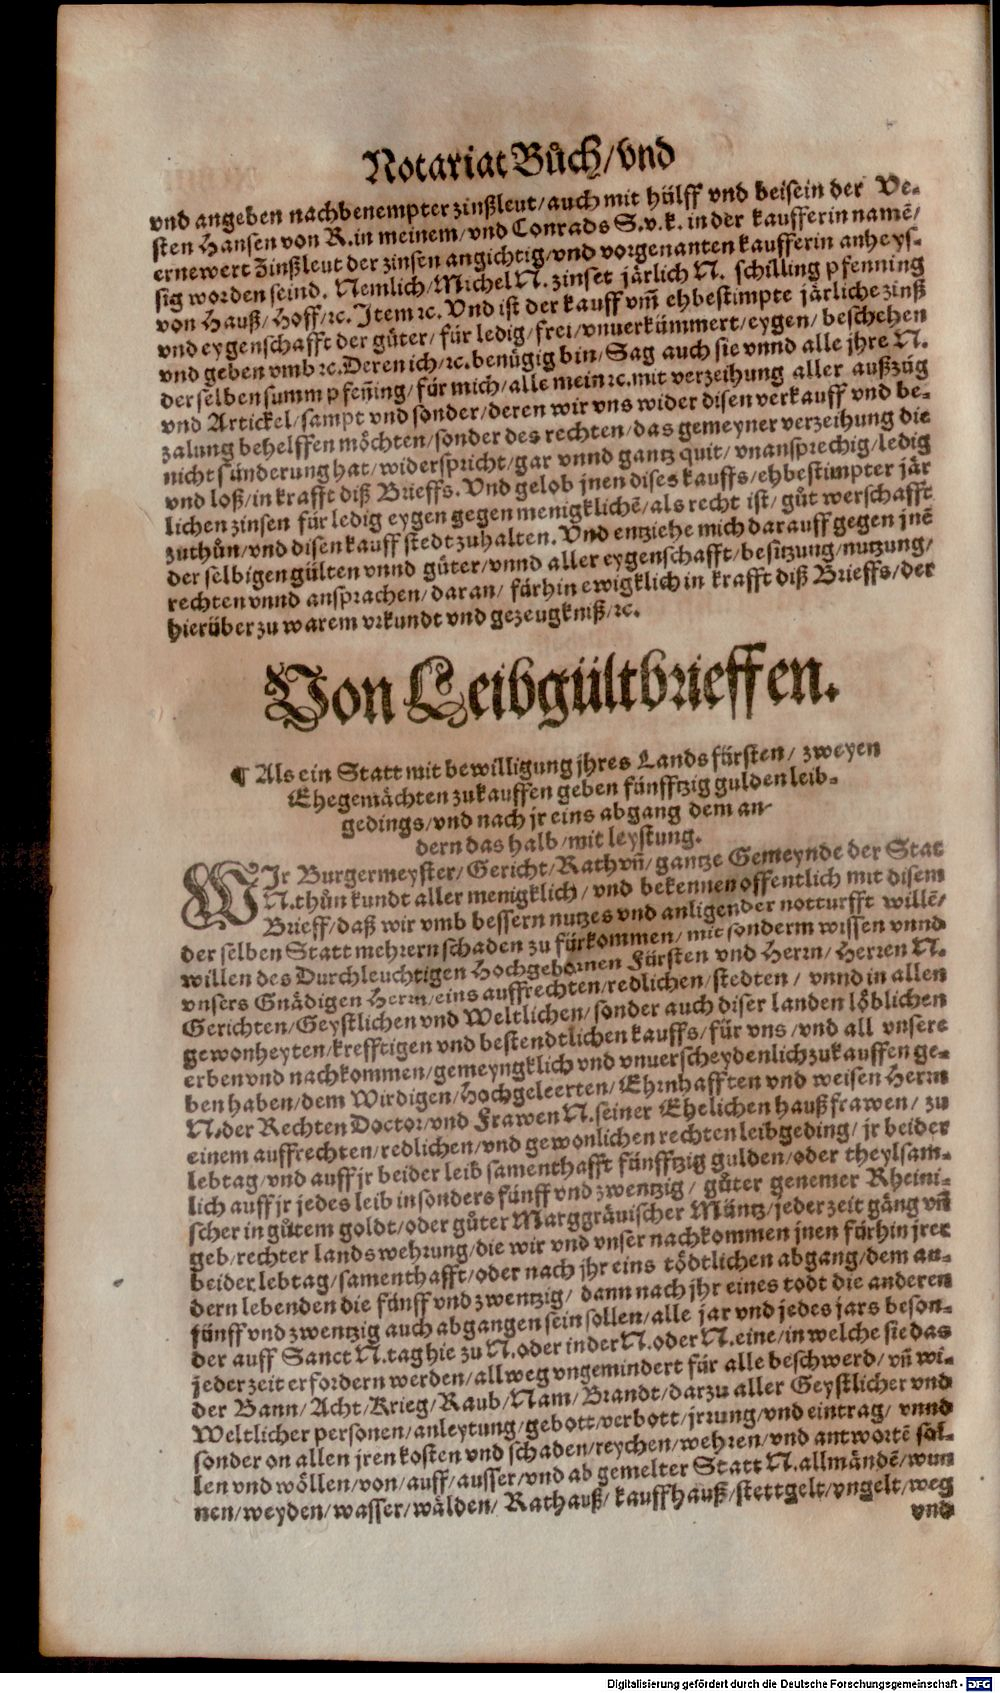 Notariat Bůch/vnd
vnd angeben nachbenempter zinßleut/auch mit hülff vnd beisein der Ve-
sten Hansen von R.in meinem/vnd Conrads S.v.k. in der kaufferin namē/
ernewert Zinßleut der zinsen angichtig/vnd vorgenanten kaufferin anheys-
sig worden seind. Nemlich/Michel N. zinset järlich N. schilling pfenning
von Hauß/Hoff/ꝛc. Item ꝛc. Vnd ist der kauff vm̄ ehbestimpte järliche zinß
vnd eygenschafft der güter/für ledig/frei/vnuerkümmert/eygen/beschehen
vnd geben vmb ꝛc. Deren ich/ꝛc. benügig bin/Sag auch sie vnnd alle jhre N.
der selben summ pfen̄ing/für mich/alle mein ꝛc. mit verzeihung aller außzüg
vnd Artickel/sampt vnd sonder/deren wir vns wider disen verkauff vnd be-
zalung behelffen möchten/sonder des rechten/das gemeyner verzeihung die
nicht sünderung hat/widerspricht/gar vnnd gantz quit/vnansprechig/ledig
vnd loß/in krafft diß Brieffs. Vnd gelob jnen dises kauffs/ehbestimpter jär
lichen zinsen für ledig eygen gegen menigklichē/als recht ist/gůt werschafft
zuthůn/vnd disen kauff stedt zuhalten. Vnd entziehe mich darauff gegen jnē
der selbigen gülten vnnd güter/vnnd aller eygenschafft/besitzung/nutzung/
rechten vnnd ansprachen/daran/fürhin ewigklich in krafft diß Brieffs/der
hierüber zu warem vrkundt vnd gezeugkniß/ꝛc.
Von Leibgültbrieffen.
¶ Als ein Statt mit bewilligung jhres Landsfürsten/zweyen
Ehegemächten zukauffen geben fünfftzig gulden leib-
gedings/vnd nach jr eins abgang dem an-
dern das halb/mit leystung.
WIr Burgermeyster/Gericht/Rath vn̄/gantze Gemeynde der Stat
N.thůn kundt aller menigklich/vnd bekennen offentlich mit disem
Brieff/daß wir vmb bessern nutzes vnd anligender notturfft willē/
der selben Statt mehrern schaden zu fürkommen/mit sonderm wissen vnnd
willen des Durchleuchtigen Hochgebornen Fürsten vnd Herrn/Herren N.
vnsers Gnädigen Herrn/eins auffrechten/redlichen/stedten/vnnd in allen
Gerichten/Geystlichen vnd Weltlichen/sonder auch diser landen löblichen
gewonheyten/krefftigen vnd bestendtlichen kauffs/für vns/vnd all vnsere
erben vnd nachkommen/gemeyngklich vnd vnuerscheydenlich zukauffen ge-
ben haben/dem Wirdigen/Hochgeleerten/Ehrnhafften vnd weisen Herrn
N.der Rechten Doctor/vnd Frawen N.seiner Ehelichen haußfrawen/zu
einem auffrechten/redlichen/vnd gewonlichen rechten leibgeding/jr beider
lebtag/vnd auff jr beider leib samenthafft fünfftzig gulden/oder theylsam-
lich auff jr jedes leib in sonders fünff vnd zwentzig/gůter genemer Rheini-
scher in gůtem goldt/oder gůter Marggräuischer Müntz/jeder zeit gäng vn̄
geb/rechter landswehrung/die wir vnd vnser nachkommen jnen fürhin jrer
beider lebtag/samenthafft/oder nach jhr eins tödtlichen abgang/dem an-
dern lebenden die fünff vnd zwentzig/dann nach jhr eines todt die anderen
fünff vnd zwentzig auch abgangen sein sollen/alle jar vnd jedes jars beson-
der auff Sanct N.tag hie zu N.oder in der N.oder N.eine/in welche sie das
jeder zeit erfordern werden/allweg vngemindert für alle beschwerd/vn̄ wi-
der Bann/Acht/Krieg/Raub/Nam/Brandt/darzu aller Geystlicher vnd
Weltlicher personen/anleytung/gebott/verbott/jrrung/vnd eintrag/vnnd
sonder on allen jren kosten vnd schaden/reychen/wehren/vnd antwortē sol-
len vnd wöllen/von/auff/ausser/vnd ab gemelter Statt N.allmändē/wun
nen/weyden/wasser/wälden/Rathauß/kauffhauß/stettgelt/vngelt/weg
vnd
Digitalisierung gefördert durch die Deutsche Forschungsgemeinschaft - DFG